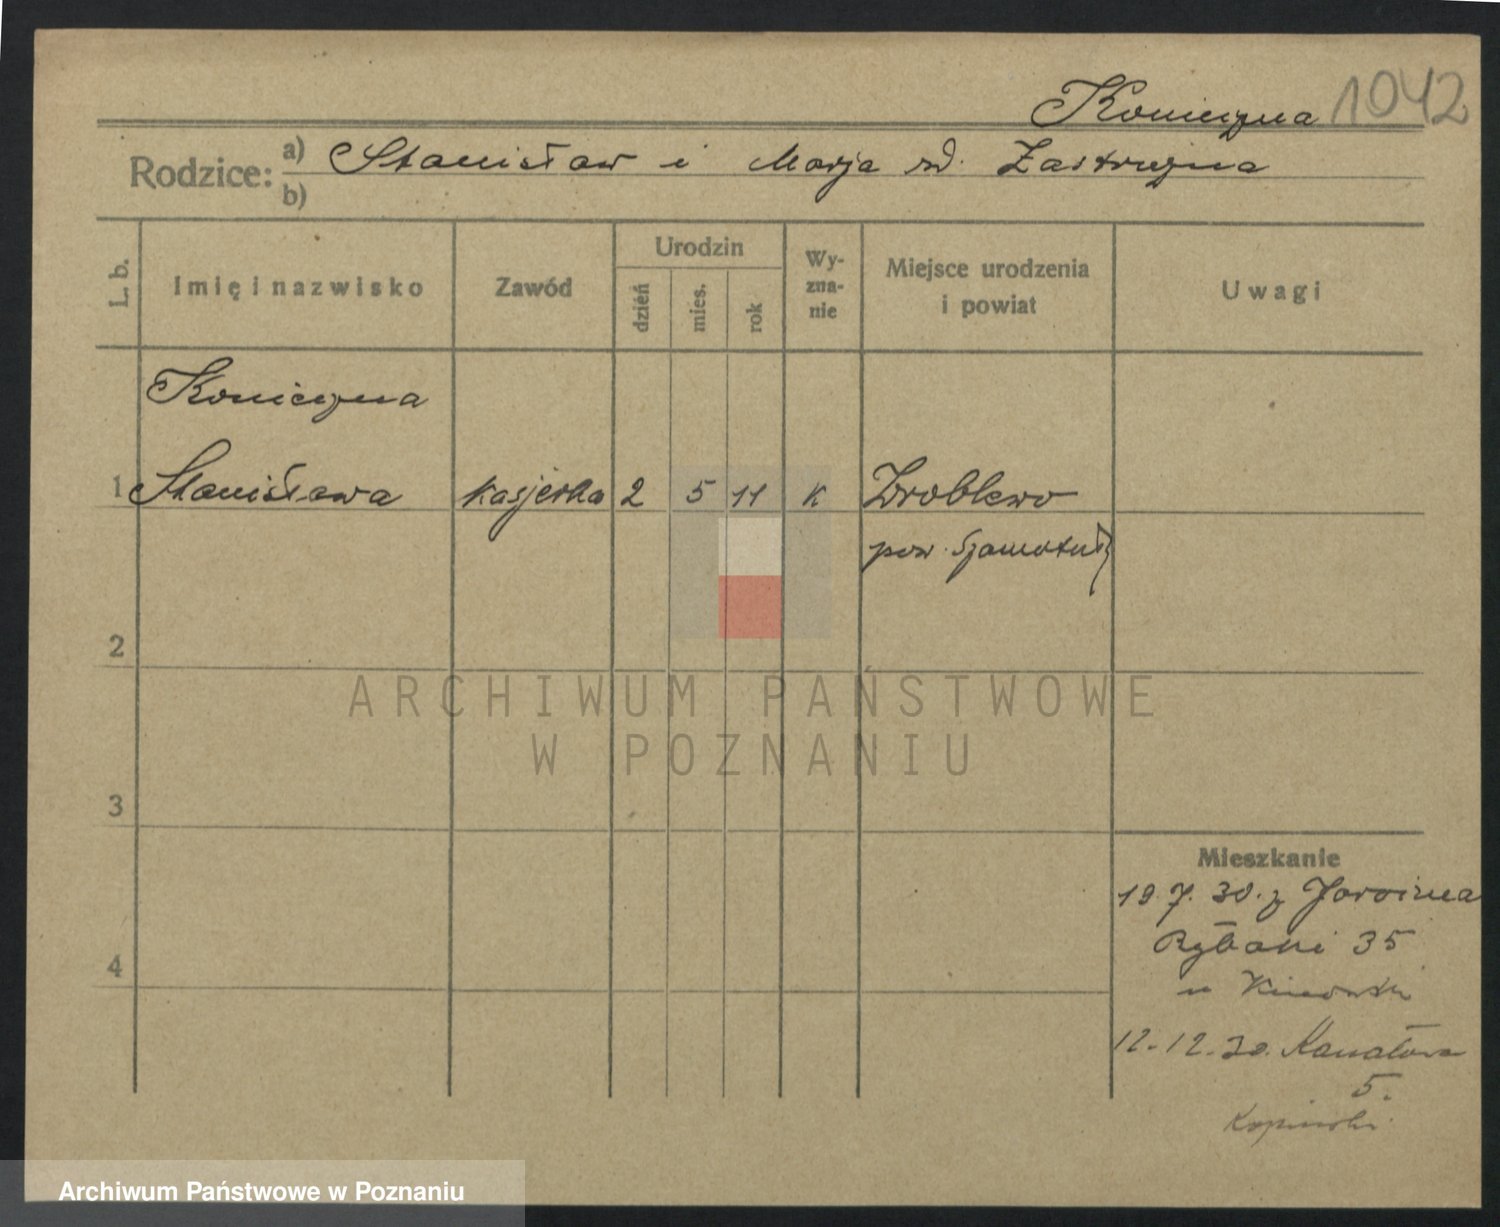 Konieczna 1042
Rodzice: a) Stanisław i Marja rd.
b)
L. b.
Imię i nazwisko
Zawód
Urodzin
dzień
mies.
rok
Wy-
zna-
nie
Miejsce urodzenia
i powiat
Uwagi
Konieczna
1 Stanisława kasjerka 2 5 11 k Wroblewo
pow. Szamotuły
2
ARCHIWUM PAŃSTWOWE
W POZNANIU
3
Mieszkanie
19.7.30. z Jarocina
Rybaki 35
u
4
12.-12.30. Kanałowa
5.
Archiwum Państwowe w Poznaniu